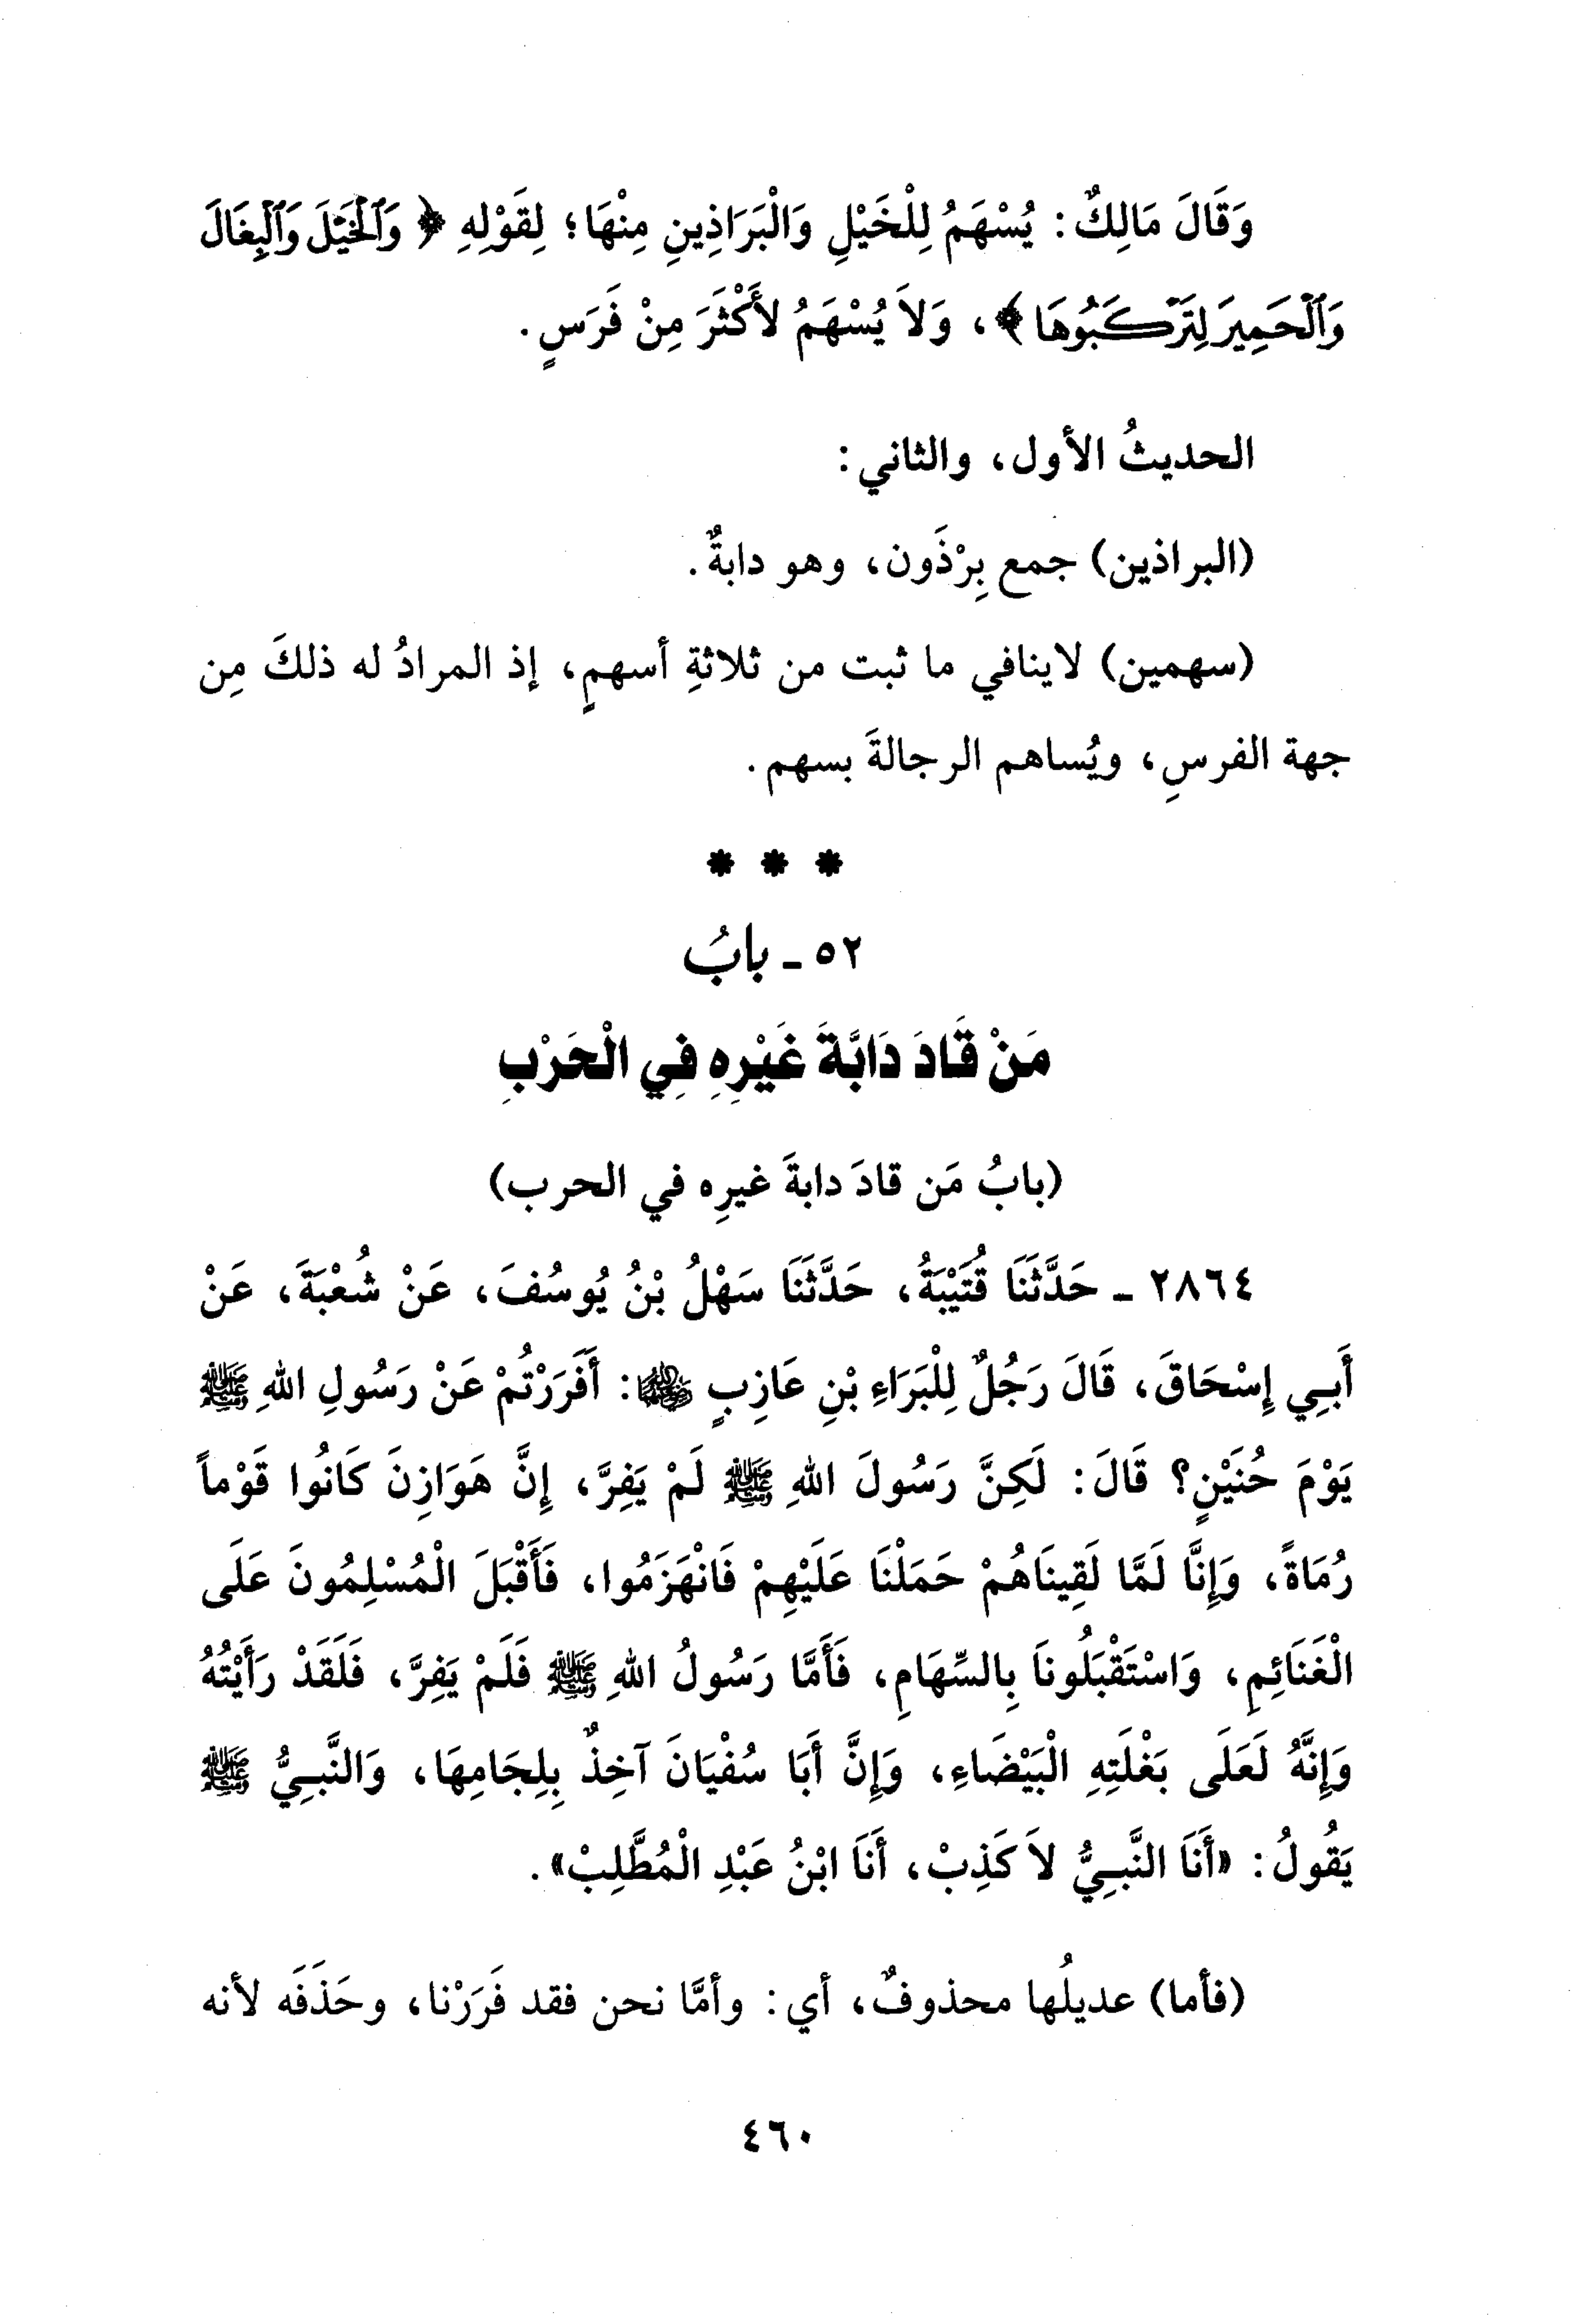 وَقَالَ مَالِكٌ: يُسْهَمُ لِلْخَيْلِ وَالْبَرَاذِينِ مِنْهَا؛ لِقَوْلِهِ ﴿وَٱلْخَيْلَ وَٱلْبِغَالَ
وَٱلْحَمِيرَ لِتَرْكَبُوهَا﴾، وَلاَ يُسْهَمُ لأَكْثَرَ مِنْ فَرَسٍ.
الحديثُ الأول، والثاني:
(البراذين) جمع بِرْذَون، وهو دابةٌ.
(سهمين) لاينافي ما ثبت من ثلاثةِ أسهمٍ، إذ المرادُ له ذلكَ مِن
جهة الفرسِ، ويُساهم الرجالةَ بسهم.
* * *
٥٢ - بابُ
مَنْ قَادَ دَابَّةَ غَيْرِهِ فِي الْحَرْبِ
(بابُ مَن قادَ دابةَ غيرِه في الحرب)
٢٨٦٤ - حَدَّثَنَا قُتَيْبَةُ، حَدَّثَنَا سَهْلُ بْنُ يُوسُفَ، عَنْ شُعْبَةَ، عَنْ
أَبِي إِسْحَاقَ، قَالَ رَجُلٌ لِلْبَرَاءِ بْنِ عَازِبٍ رضي الله عنهما: أَفَرَرْتُمْ عَنْ رَسُولِ اللهِ ﷺ
يَوْمَ حُنَيْنٍ؟ قَالَ: لَكِنَّ رَسُولَ اللهِ ﷺ لَمْ يَفِرَّ، إِنَّ هَوَازِنَ كَانُوا قَوْماً
رُمَاةً، وَإِنَّا لَمَّا لَقِينَاهُمْ حَمَلْنَا عَلَيْهِمْ فَانْهَزَمُوا، فَأَقْبَلَ الْمُسْلِمُونَ عَلَى
الْغَنَائِمِ، وَاسْتَقْبَلُونَا بِالسِّهَامِ، فَأَمَّا رَسُولُ اللهِ ﷺ فَلَمْ يَفِرَّ، فَلَقَدْ رَأَيْتُهُ
وَإِنَّهُ لَعَلَى بَغْلَتِهِ الْبَيْضَاءِ، وَإِنَّ أَبَا سُفْيَانَ آخِذٌ بِلِجَامِهَا، وَالنَّبِيُّ ﷺ
يَقُولُ: «أَنَا النَّبِيُّ لاَ كَذِبْ، أَنَا ابْنُ عَبْدِ الْمُطَّلِبْ».
(فأما) عديلُها محذوفٌ، أي: وأمَّا نحن فقد فَرَرْنا، وحَذَفَه لأنه
٤٦٠